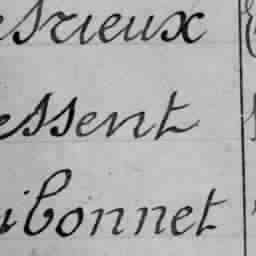 esrieux
essent
ibonnet